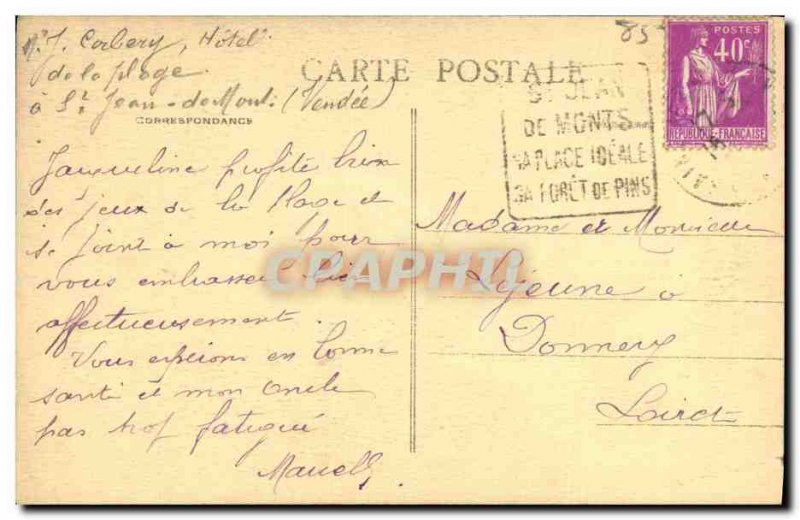 Mr J. Corbery, Hôtel
de la plage
à St Jean-de-Mont. (Vendée)
CARTE POSTALE
CORRESPONDANCE
POSTES
40c
REPUBLIQUE-FRANÇAISE
ST JEAN
DE MONTS
SA PLAGE IDÉALE
SA FORÊT DE PINS
Jacqueline profite bien
des jeux de la Plage et
se joint à moi pour
vous embrasser bien
affectueusement.
Vous espérons en bonne
santé et mon oncle
pas trop fatigué
Marcelle
Madame et Monsieur
Lejeune à
Donnery
Loiret
CPAPHIL